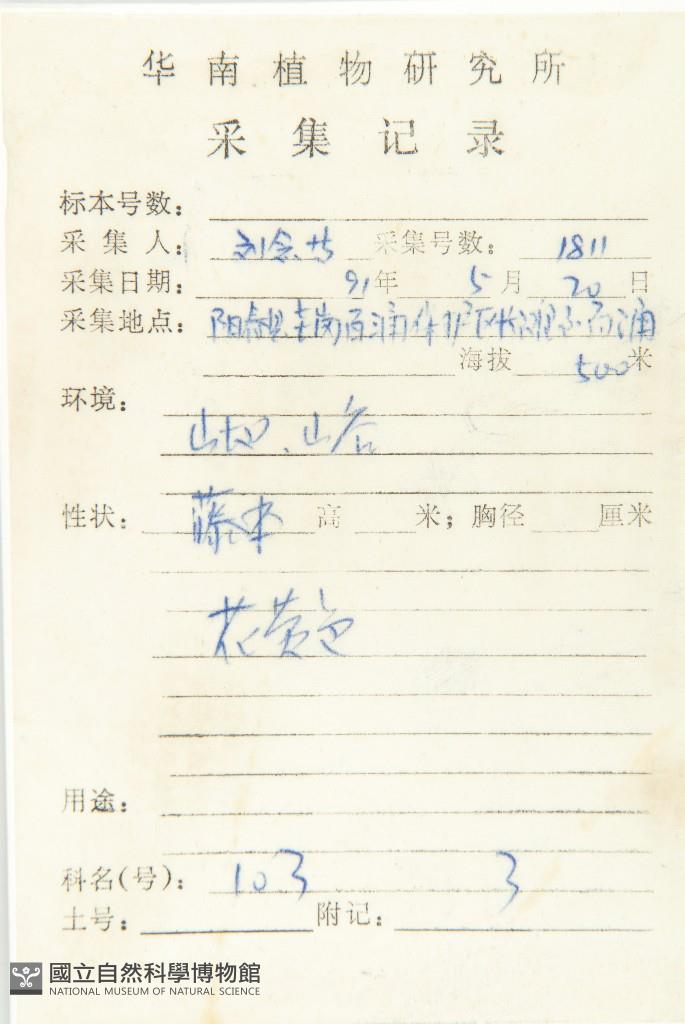 华南植物研究所
采集记录
标本号数:
采集人: 刘念 采集号数: 1811
采集日期: 91年 5月 20日
采集地点: 阳春县 岗百涌保护区 百涌
海拔 500米
环境:
山坡、山谷
性状: 藤本 高 米; 胸径 厘米
花黄色
用途:
科名(号): 103 3
土号: 附记:
國立自然科學博物館
NATIONAL MUSEUM OF NATURAL SCIENCE